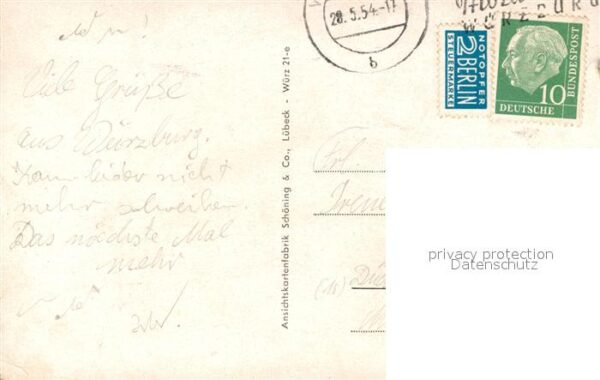 Viele Grüße
aus Würzburg.
Kann leider nicht
mehr schreiben.
Das nächste Mal
mehr
Ansichtskartenfabrik Schöning & Co., Lübeck - Würz 21-e
28.5.54.-17
b
WÜRZBURG
NOTOPFER
2 BERLIN
STEUERMARKE
DEUTSCHE BUNDESPOST
10
Frl.
privacy protection
Datenschutz